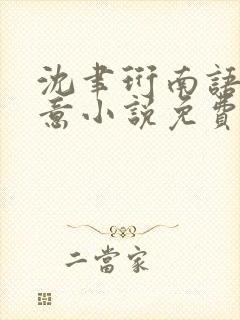 沈聿珩南語
意小說免費
二當家